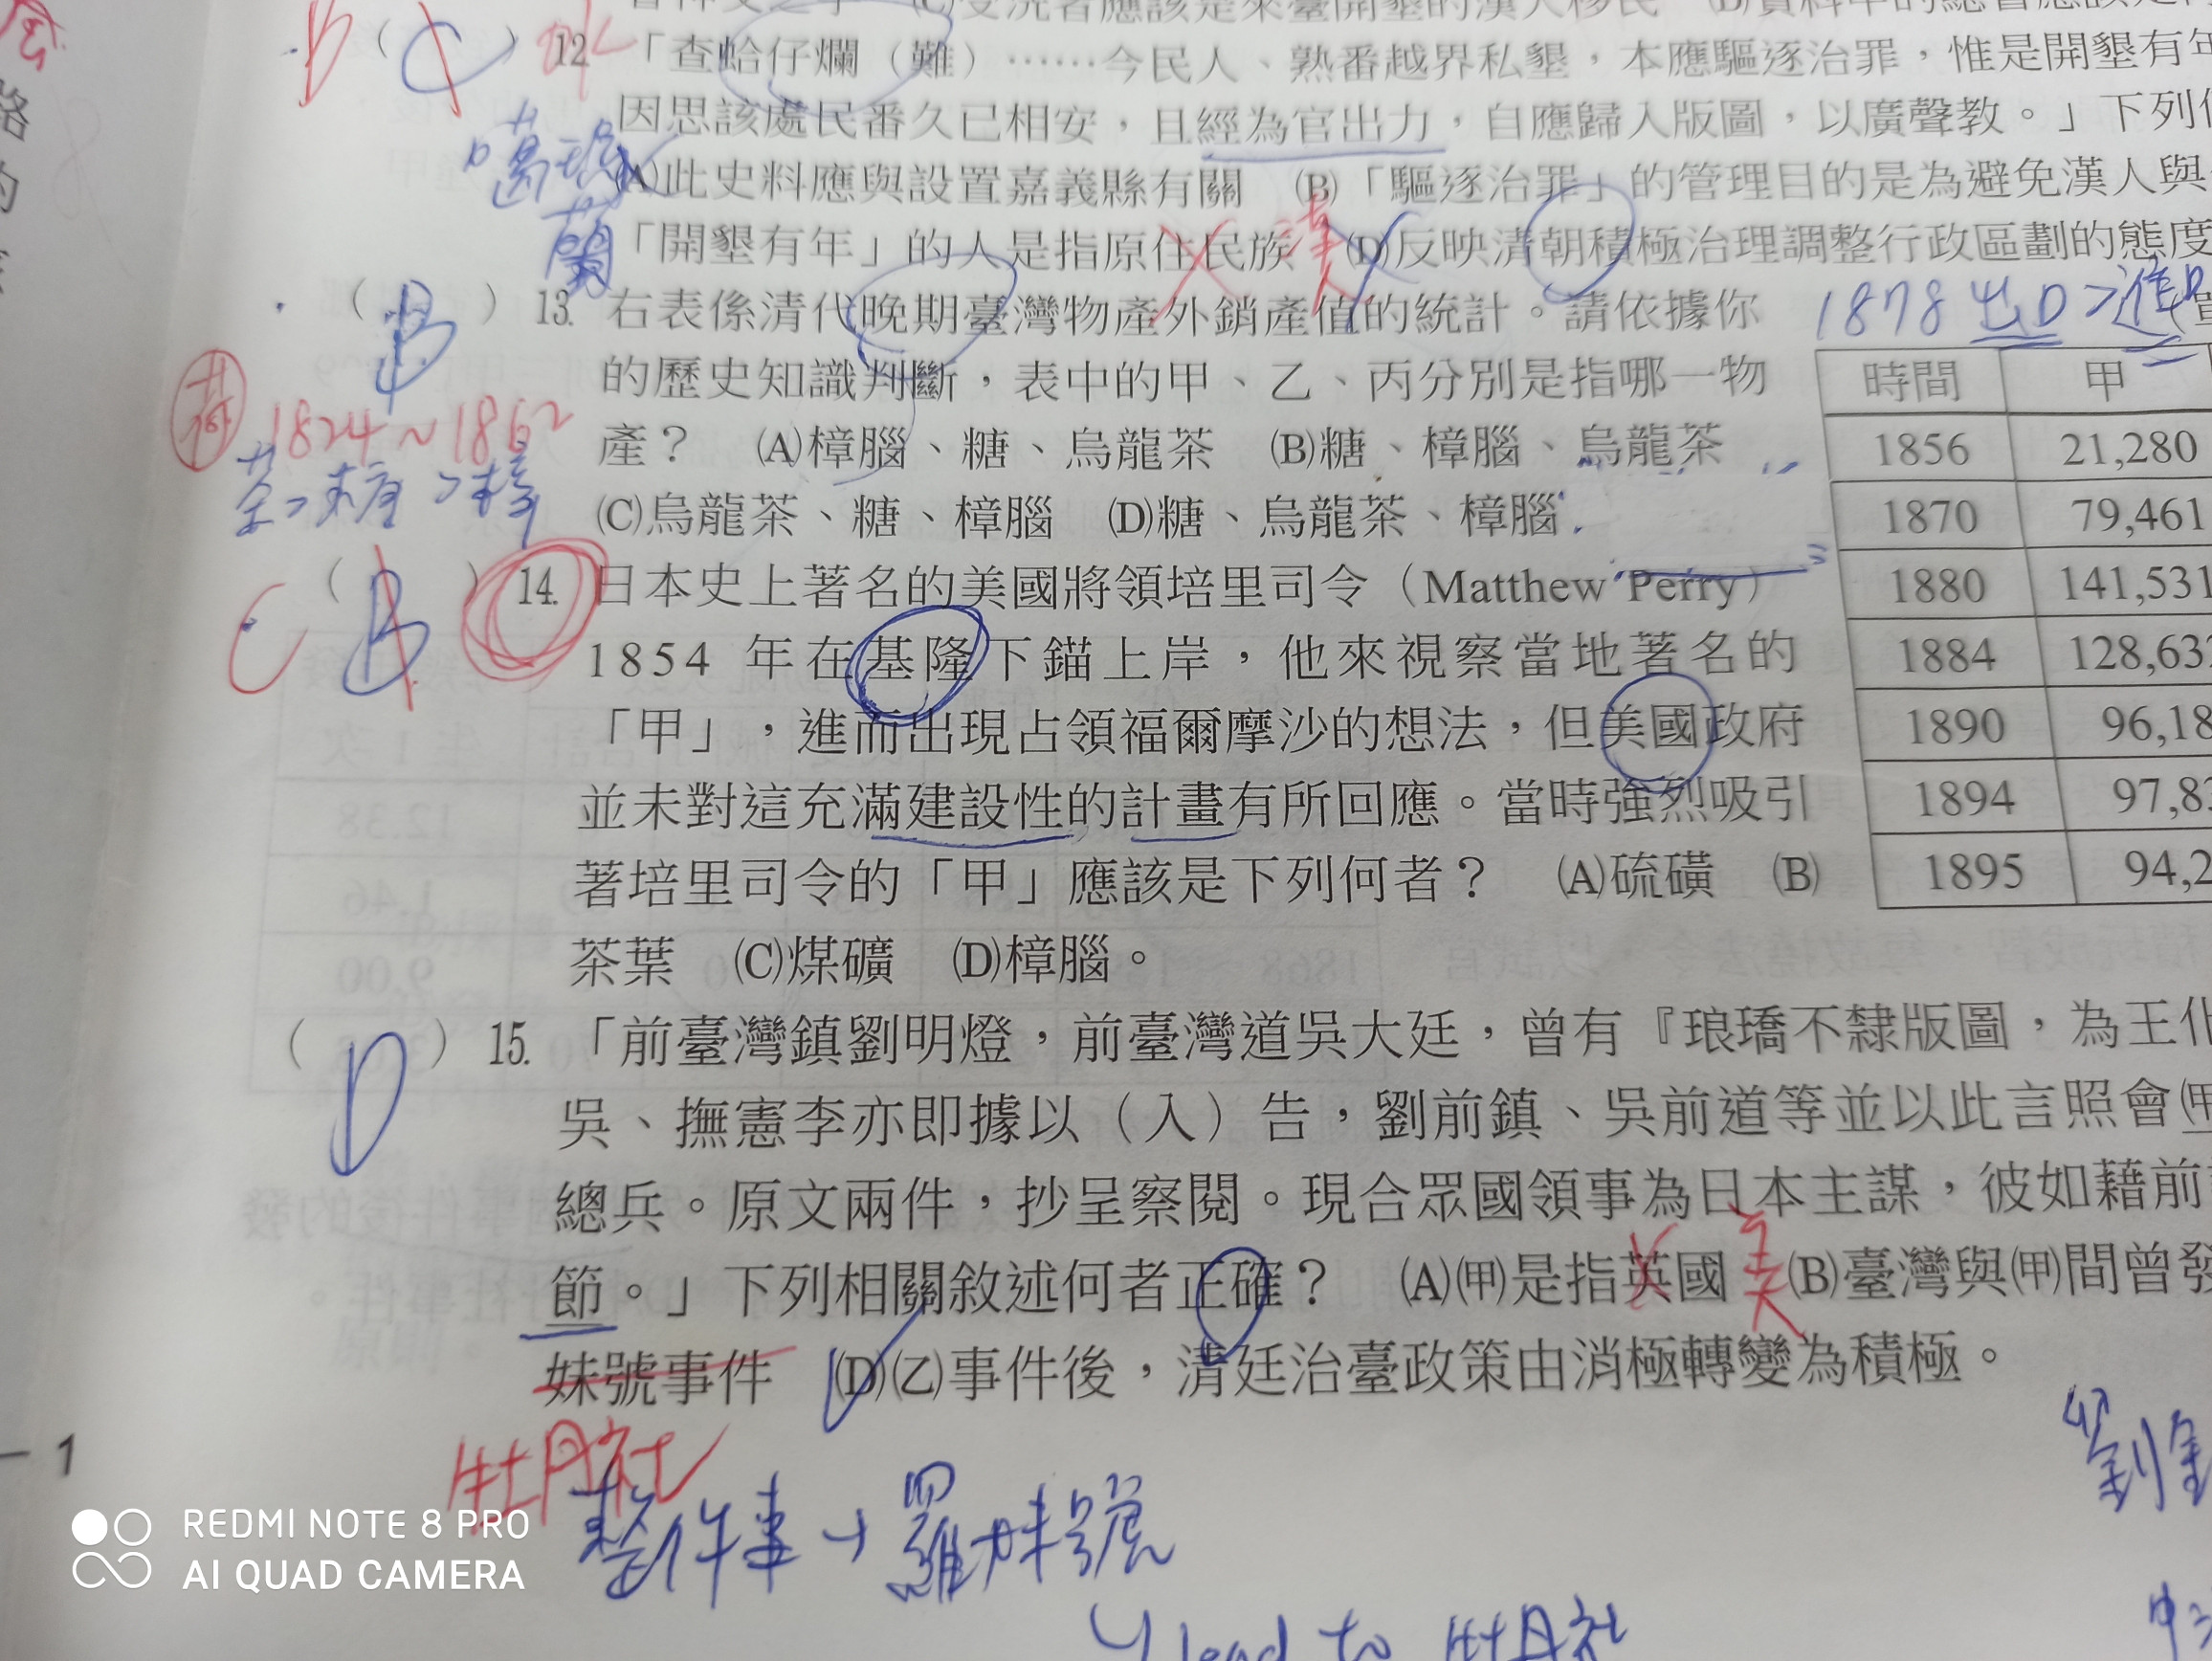 12 「查蛤仔爛（難）……今民人、熟番越界私墾，本應驅逐治罪，惟是開墾有年
因思該處民番久已相安，且經為官出力，自應歸入版圖，以廣聲教。」下列
噶瑪蘭
(A)此史料應與設置嘉義縣有關 (B)「驅逐治罪」的管理目的是為避免漢人與
「開墾有年」的人是指原住民族 漢人 (D)反映清朝積極治理調整行政區劃的態度
( B ) 13. 右表係清代晚期臺灣物產外銷產值的統計。請依據你
1878 出口>進口
的歷史知識判斷，表中的甲、乙、丙分別是指哪一物
產？ (A)樟腦、糖、烏龍茶 (B)糖、樟腦、烏龍茶
(C)烏龍茶、糖、樟腦 (D)糖、烏龍茶、樟腦
1824~1862
茶>糖>樟
時間 甲
1856 21,280
1870 79,461
1880 141,531
1884 128,63
1890 96,18
1894 97,8
1895 94,2
C ( B ) 14. 日本史上著名的美國將領培里司令（Matthew Perry）
1854 年在基隆下錨上岸，他來視察當地著名的
「甲」，進而出現占領福爾摩沙的想法，但美國政府
並未對這充滿建設性的計畫有所回應。當時強烈吸引
著培里司令的「甲」應該是下列何者？ (A)硫磺 (B)
茶葉 (C)煤礦 (D)樟腦。
( D ) 15. 「前臺灣鎮劉明燈，前臺灣道吳大廷，曾有『琅𤩝不隸版圖，為王化
吳、撫憲李亦即據以（入）告，劉前鎮、吳前道等並以此言照會(甲
總兵。原文兩件，抄呈察閱。現合眾國領事為日本主謀，彼如藉前
節。」下列相關敘述何者正確？ (A)(甲)是指英國 美 (B)臺灣與(甲)間曾發
妹號事件 (D)(乙)事件後，清廷治臺政策由消極轉變為積極。
牡丹社
整件事→羅妹號
lead to 牡丹社
劉
- 1
REDMI NOTE 8 PRO
AI QUAD CAMERA